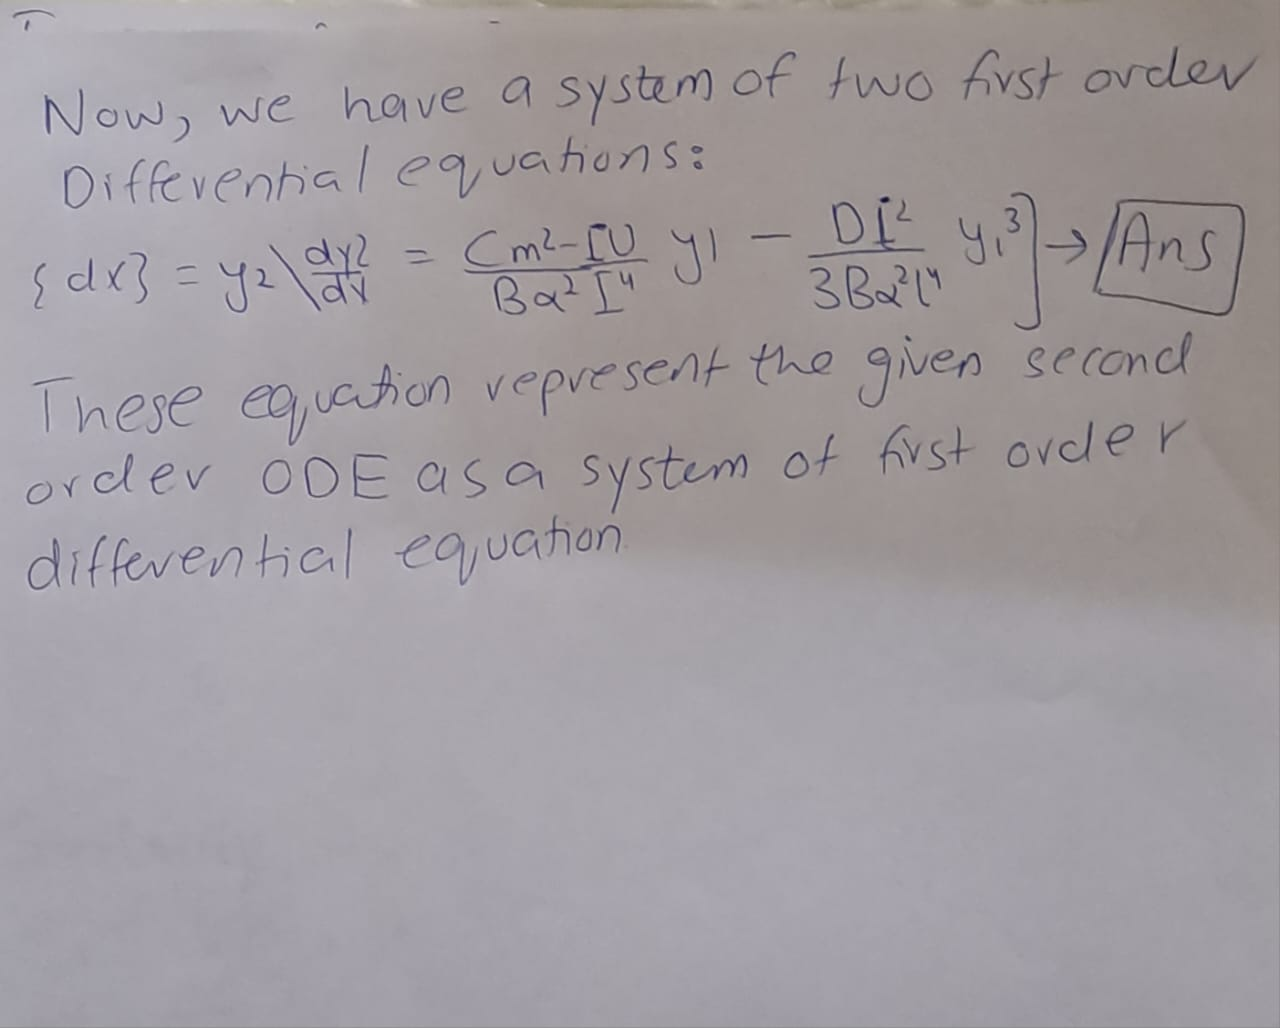 Now, we have a system of two first order
Differential equations:
{dx} = y2 \ dy2/dx = Cm²-IU/Bα²I⁴ y1 - DI²/3Bα²l⁴ y₁³] → Ans
These equation represent the given second
order ODE as a system of first order
differential equation